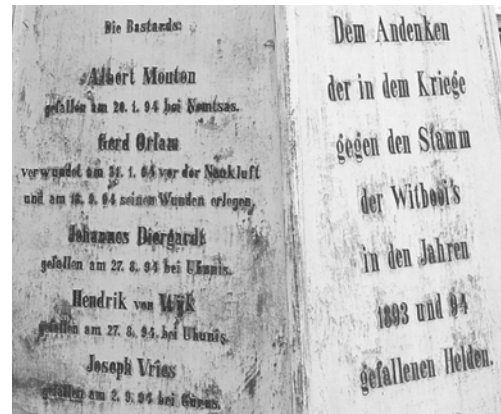 Die Bastards:
Albert Mouton
gefallen am 20. 1. 94 bei Nomtsas.
Gerd Orlam
verwundet am 31. 1. 94 vor der Naukluft
und am 18. 9. 94 seinen Wunden erlegen.
Johannes Diergardt
gefallen am 27. 8. 94 bei Uhunis.
Hendrik von Wijk
gefallen am 27. 8. 94. bei Uhunis.
Joseph Vries
gefallen am 2. 9. 94 bei
Dem Andenken
der in dem Kriege
gegen den Stamm
der Witbooi's
in den Jahren
1893 und 94
gefallenen Helden.